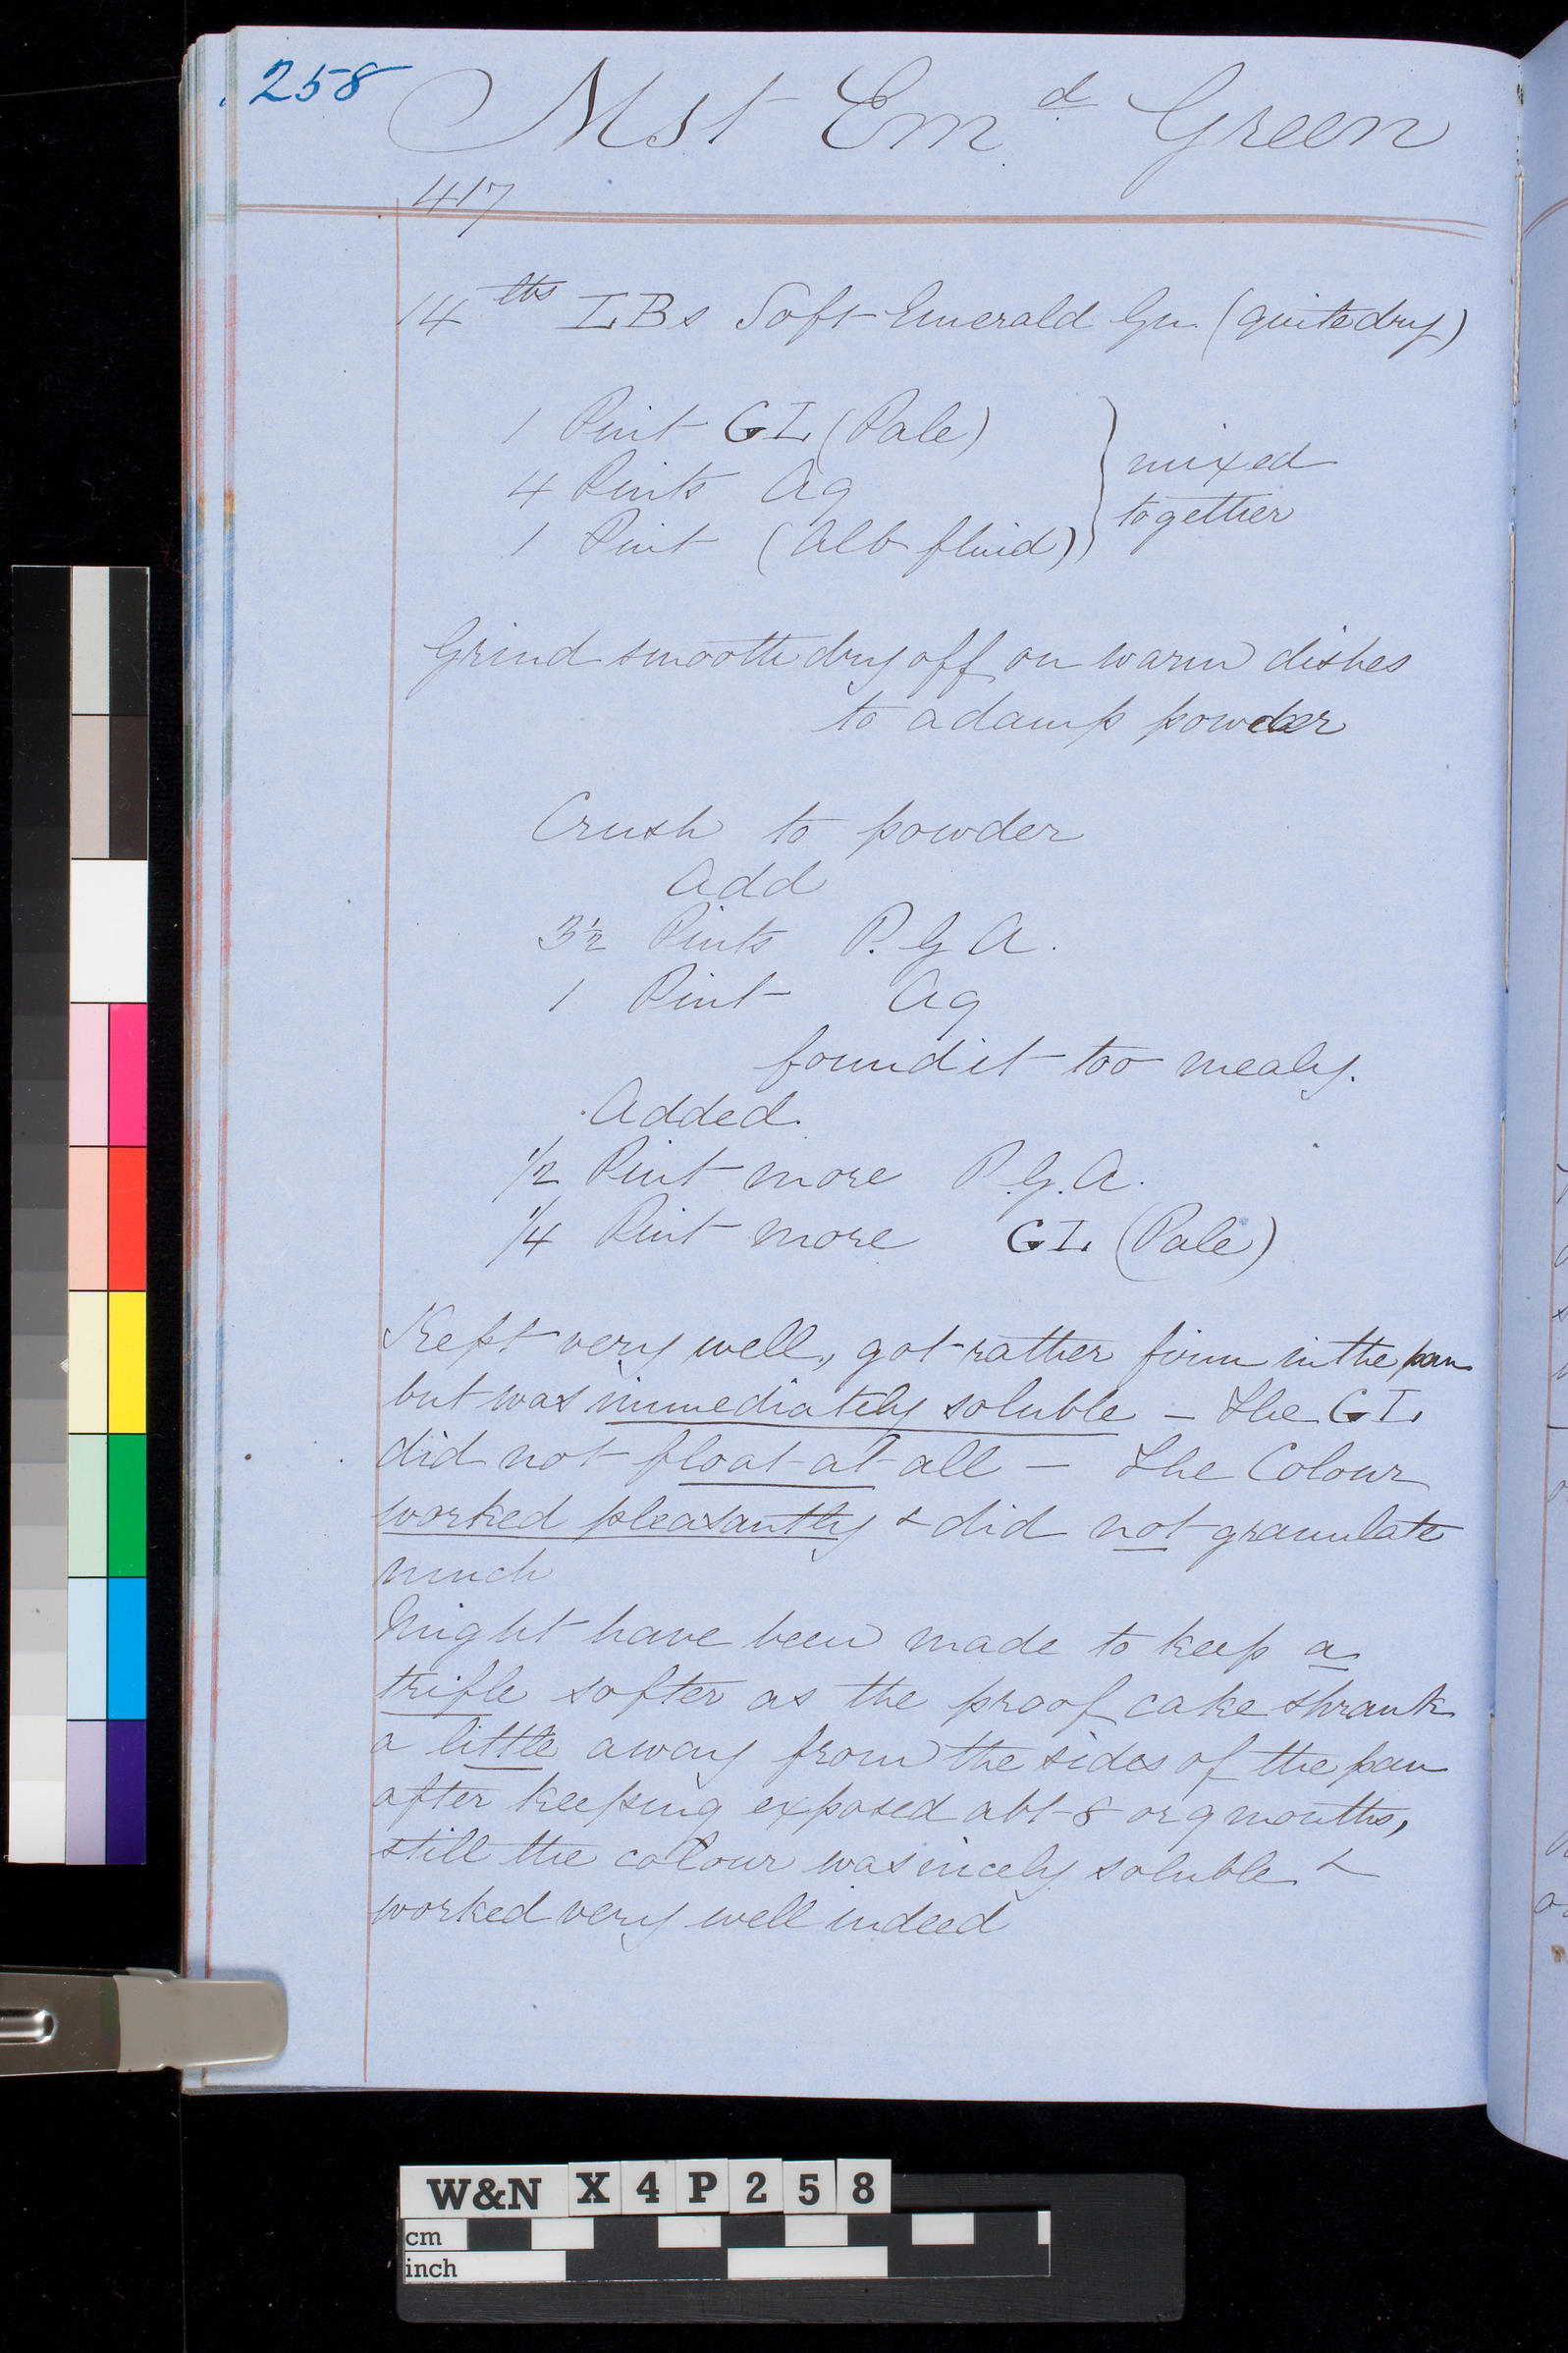 258
Mst Em.d Green
417
14 lbs LBs Soft Emerald Gn. (quite dry)
1 Pint GL (Pale)
4 Pints Aq
1 Pint (Alb fluid)
mixed
together
Grind smooth dry off on warm dishes
to a damp powder
Crush to powder
Add
3 1/2 Pints P. G A.
1 Pint Aq
found it too mealy.
Added.
1/2 Pint more P. G. A.
1/4 Pint more GL (Pale)
Kept very well, got rather firm in the pan
but was immediately soluble – The GL
did not float at all – The Colour
worked pleasantly & did not granulate
much
Might have been made to keep a
trifle softer as the proof cake shrank
a little away from the sides of the pan
after keeping exposed abt 8 or 9 months,
still the colour was nicely soluble &
worked very well indeed
W&N X4P258
cm
inch